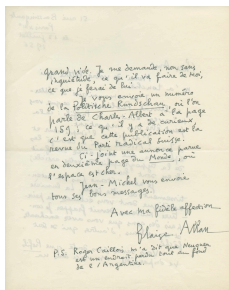 grand vide. Je me demande, non sans
inquiétude, ce qu'il va faire de moi,
ce que je ferai de lui.
Je vous envoie un numéro
de la Politische Rundschau, où l'on
parle de Charles-Albert à la page
159 ; ce qu'il y a de curieux,
c'est que cette publication est la
revue du Parti radical suisse.
Ci-joint une annonce parue
en deuxième page du Monde, où
l'espace est cher.
Jean-Michel vous envoie
tous ses bons messages.
Avec ma fidèle affection
P.S. Roger Caillois m'a dit que Neuquen
est un endroit perdu dans le fond
de l'Argentine.